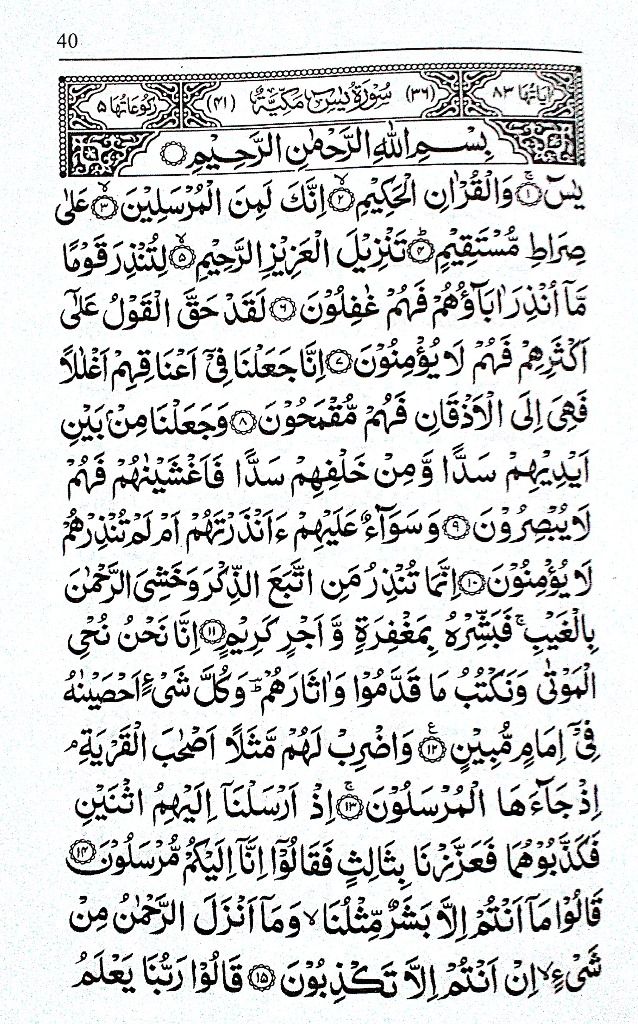 40
اٰیَاتُهَا ٨٣ (٣٦) سُوْرَةُ یٰسٓ مَكِّیَّةٌ (٤١) رُكُوْعَاتُهَا ٥
بِسْمِ اللّٰهِ الرَّحْمٰنِ الرَّحِیْمِ
یٰسٓ ۚ﴿١﴾ وَالْقُرْاٰنِ الْحَكِیْمِ ۙ﴿٢﴾ اِنَّكَ لَمِنَ الْمُرْسَلِیْنَ ۙ﴿٣﴾ عَلٰی
صِرَاطٍ مُّسْتَقِیْمٍ ؕ﴿٤﴾ تَنْزِیْلَ الْعَزِیْزِ الرَّحِیْمِ ۙ﴿٥﴾ لِتُنْذِرَ قَوْمًا
مَّاۤ اُنْذِرَ اٰبَآؤُهُمْ فَهُمْ غٰفِلُوْنَ ﴿٦﴾ لَقَدْ حَقَّ الْقَوْلُ عَلٰۤی
اَكْثَرِهِمْ فَهُمْ لَا یُؤْمِنُوْنَ ﴿٧﴾ اِنَّا جَعَلْنَا فِیْۤ اَعْنَاقِهِمْ اَغْلٰلًا
فَهِیَ اِلَی الْاَذْقَانِ فَهُمْ مُّقْمَحُوْنَ ﴿٨﴾ وَجَعَلْنَا مِنْۢ بَیْنِ
اَیْدِیْهِمْ سَدًّا وَّمِنْ خَلْفِهِمْ سَدًّا فَاَغْشَیْنٰهُمْ فَهُمْ
لَا یُبْصِرُوْنَ ﴿٩﴾ وَسَوَآءٌ عَلَیْهِمْ ءَاَنْذَرْتَهُمْ اَمْ لَمْ تُنْذِرْهُمْ
لَا یُؤْمِنُوْنَ ﴿١٠﴾ اِنَّمَا تُنْذِرُ مَنِ اتَّبَعَ الذِّكْرَ وَخَشِیَ الرَّحْمٰنَ
بِالْغَیْبِ ۚ فَبَشِّرْهُ بِمَغْفِرَةٍ وَّاَجْرٍ كَرِیْمٍ ﴿١١﴾ اِنَّا نَحْنُ نُحْیِ
الْمَوْتٰی وَنَكْتُبُ مَا قَدَّمُوْا وَاٰثَارَهُمْ ؕ وَكُلَّ شَیْءٍ اَحْصَیْنٰهُ
فِیْۤ اِمَامٍ مُّبِیْنٍ ﴿١٢﴾ وَاضْرِبْ لَهُمْ مَّثَلًا اَصْحٰبَ الْقَرْیَةِ ۘ
اِذْ جَآءَهَا الْمُرْسَلُوْنَ ۚ﴿١٣﴾ اِذْ اَرْسَلْنَاۤ اِلَیْهِمُ اثْنَیْنِ
فَكَذَّبُوْهُمَا فَعَزَّزْنَا بِثَالِثٍ فَقَالُوْۤا اِنَّاۤ اِلَیْكُمْ مُّرْسَلُوْنَ ﴿١٤﴾
قَالُوْا مَاۤ اَنْتُمْ اِلَّا بَشَرٌ مِّثْلُنَا ۙ وَمَاۤ اَنْزَلَ الرَّحْمٰنُ مِنْ
شَیْءٍ ۙ اِنْ اَنْتُمْ اِلَّا تَكْذِبُوْنَ ﴿١٥﴾ قَالُوْا رَبُّنَا یَعْلَمُ